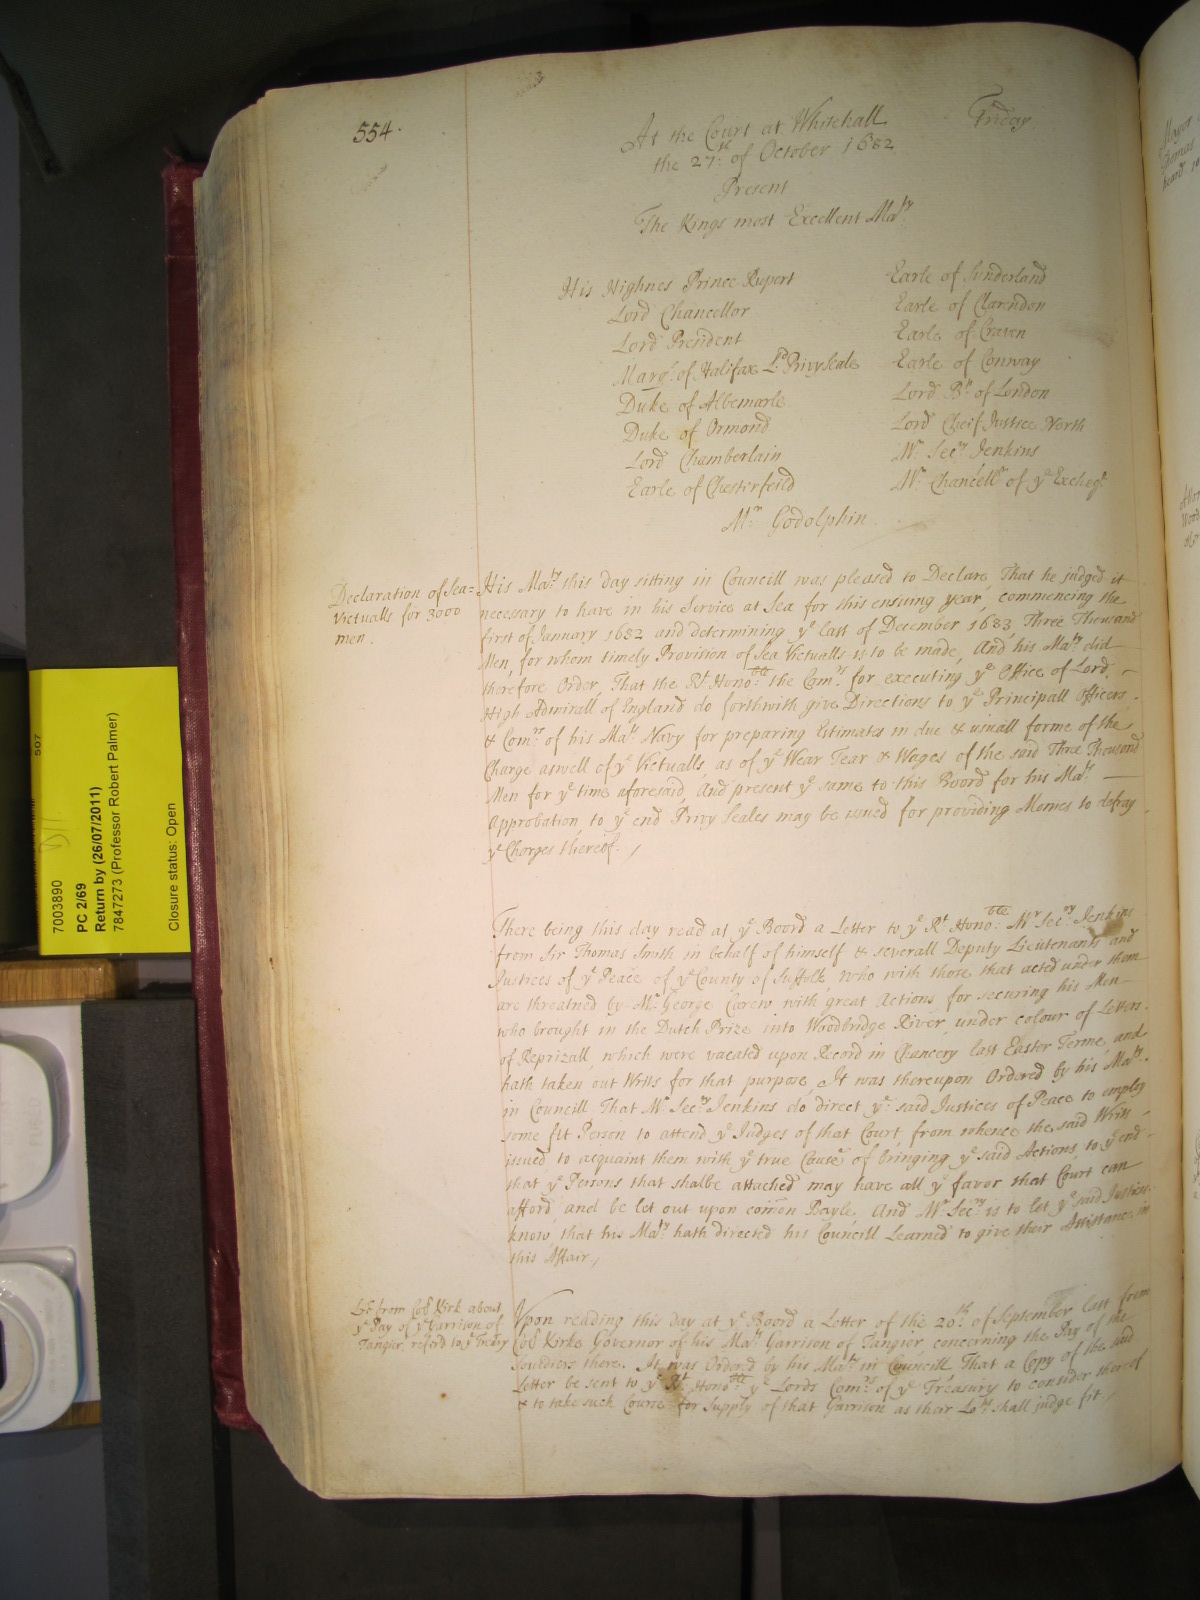 554.
At the Court at Whitehall
Friday
the 27th. of October 1682
Present
The Kings most Excellent Maty.
His Highnes Prince Rupert
Lord Chancellor
Lord President
Marqs. of Halifax Ld. Privy Seale
Duke of Albemarle
Duke of Ormond
Lord Chamberlain
Earle of Chesterfeild
Earle of Sunderland
Earle of Clarendon
Earle of Craven
Earle of Conway
Lord Bp. of London
Lord Cheif Justice North
Mr. Secry. Jenkins
Mr. Chancellr. of ye Excheqr
Mr. Godolphin.
Declaration of Sea=
Victualls for 3000
men.
His Maty. this day sitting in Councill was pleased to Declare, That he judged it
necessary to have in his Service at Sea for this ensuing year, commencing the
first of January 1682 and determining ye last of December 1683, Three Thousand
Men, for whom timely Provision of Sea Victualls is to be made, And his Maty. did
therefore Order, That the Rt. Honoble. the Comrs. for executing ye Office of Lord
High Admirall of England do forthwith give Directions to ye Principall Officers
& Comrs. of his Mats. Navy for preparing Estimates in due & usuall forme of the
Charge aswell of ye Victualls, as of ye Wear Tear & Wages of the said Three Thousand
Men for ye time aforesaid, And present ye same to this Boord for his Mats.
Approbation, to ye end Privy Seales may be issued for providing Monies to defray
ye Charges thereof. /
There being this day read at ye Boord a Letter to ye Rt. Honoble. Mr. Secry. Jenkins
from Sir Thomas Smith in behalf of himself & severall Deputy Lieutenants and
Justices of ye Peace of ye County of Suffolk, who with those that acted under them
are threatned by Mr. George Carew with great Actions for securing his Men
who brought in the Dutch Prize into Woodbridge River, under colour of Letters
of Reprizall, which were vacated upon Record in Chancery last Easter Terme, and
hath taken out Writs for that purpose, It was thereupon Ordered by his Maty.
in Councill That Mr. Secry. Jenkins do direct ye said Justices of Peace to employ
some fit Person to attend ye Judges of that Court, from whence the said Writts
issued to acquaint them with ye true Cause of bringing ye said Actions, to ye end
that ye Persons that shalbe attached may have all ye favor that Court can
afford, and be let out upon com̄on Bayle, And Mr. Secry. is to let ye said Justices
know, that his Maty. hath directed his Councill Learned to give their Assistance in
this Affair,/
Lre from Coll Kirk about
ye Pay of ye Garrison of
Tangier, refer'd to ye Trea͠ry
Upon reading this day at ye Boord a Letter of the 20th. of September last from
Coll Kirke Governor of his Mats. Garrison of Tangier concerning the Pay of the
Souldiers there. It was Ordered by his Maty. in Councill That a Copy of the said
Letter be sent to ye Rt. Honoble. ye Lords Comrs. of ye Treasury to consider thereof
& to take such Course for Supply of that Garrison as their Lopps. shall judge fit,/
7003890
PC 2/69
Return by (26/07/2011)
7847273 (Professor Robert Palmer)
Closure status: Open
507